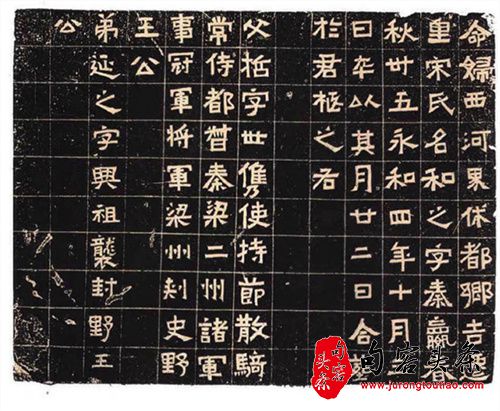 命婦西河界休都鄉吉遷
里宋氏名和之字秦嬴春
秋卅五永和四年十月
日卒以其月廿二日合葬
於君柩之右
父哲字世儁使持節散騎
常侍都督秦梁二州諸軍
事冠軍將軍梁州刺史野
王公
弟延之字興祖襲封野王
公
句容头条
句容头条
www.jurongtoutiao.com